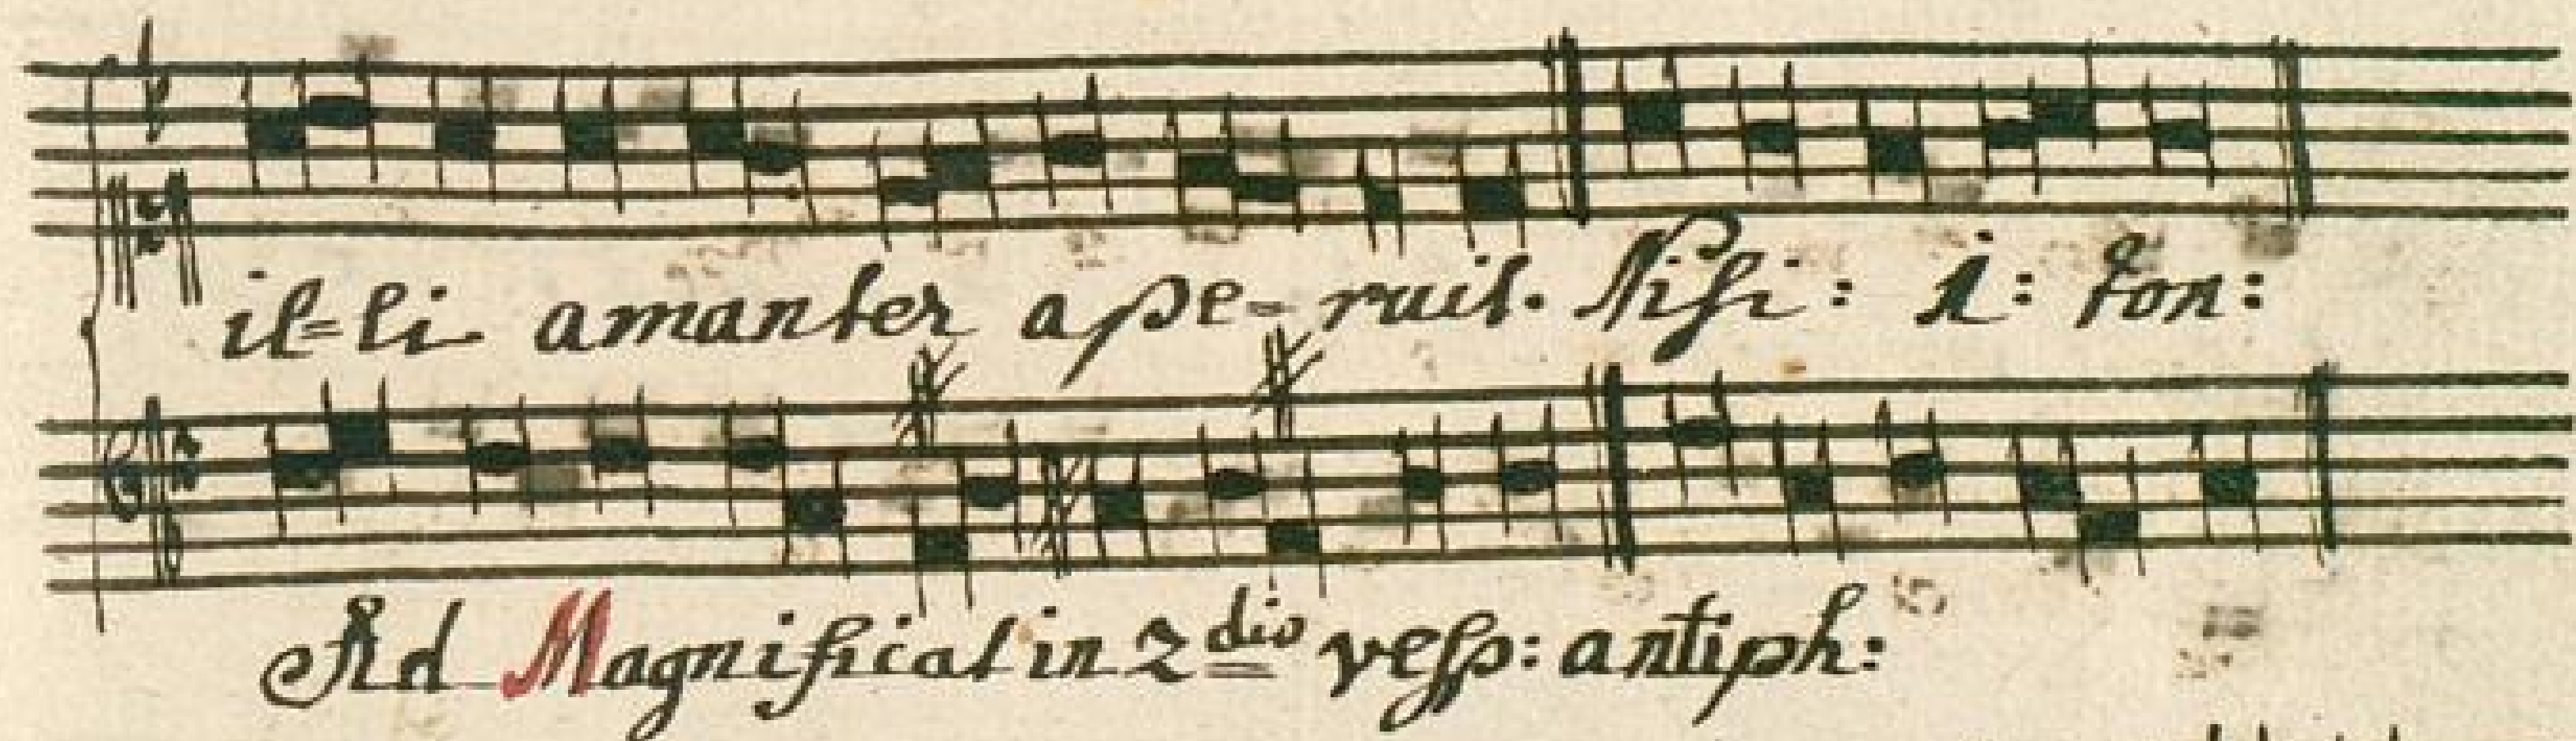 il=li amanter ape=ruit. Nisi: 1: ton:
Ad Magnificat in 2dis vesp: antiph: